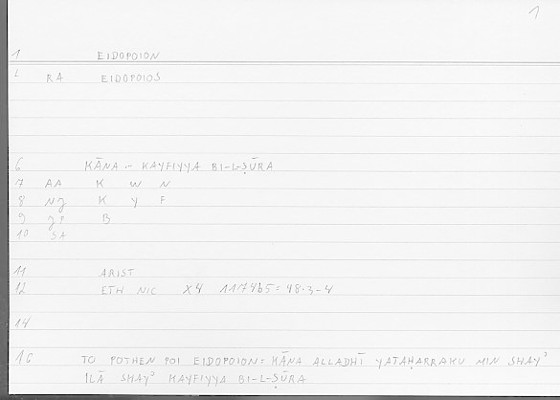 1
1 EIDOPOION
2 RA EIDOPOIOS
6 KĀNA - KAYFIYYA BI-L-ṢŪRA
7 AA K W N
8 NJ K Y F
9 JP B
10 SA
11 ARIST
12 ETH NIC X4 1174b5 = 48.3-4
14
16 TO POTHEN POI EIDOPOION: KĀNA ALLADHĪ YATAḤARRAKU MIN SHAYʾ
ILĀ SHAYʾ KAYFIYYA BI-L-ṢŪRA